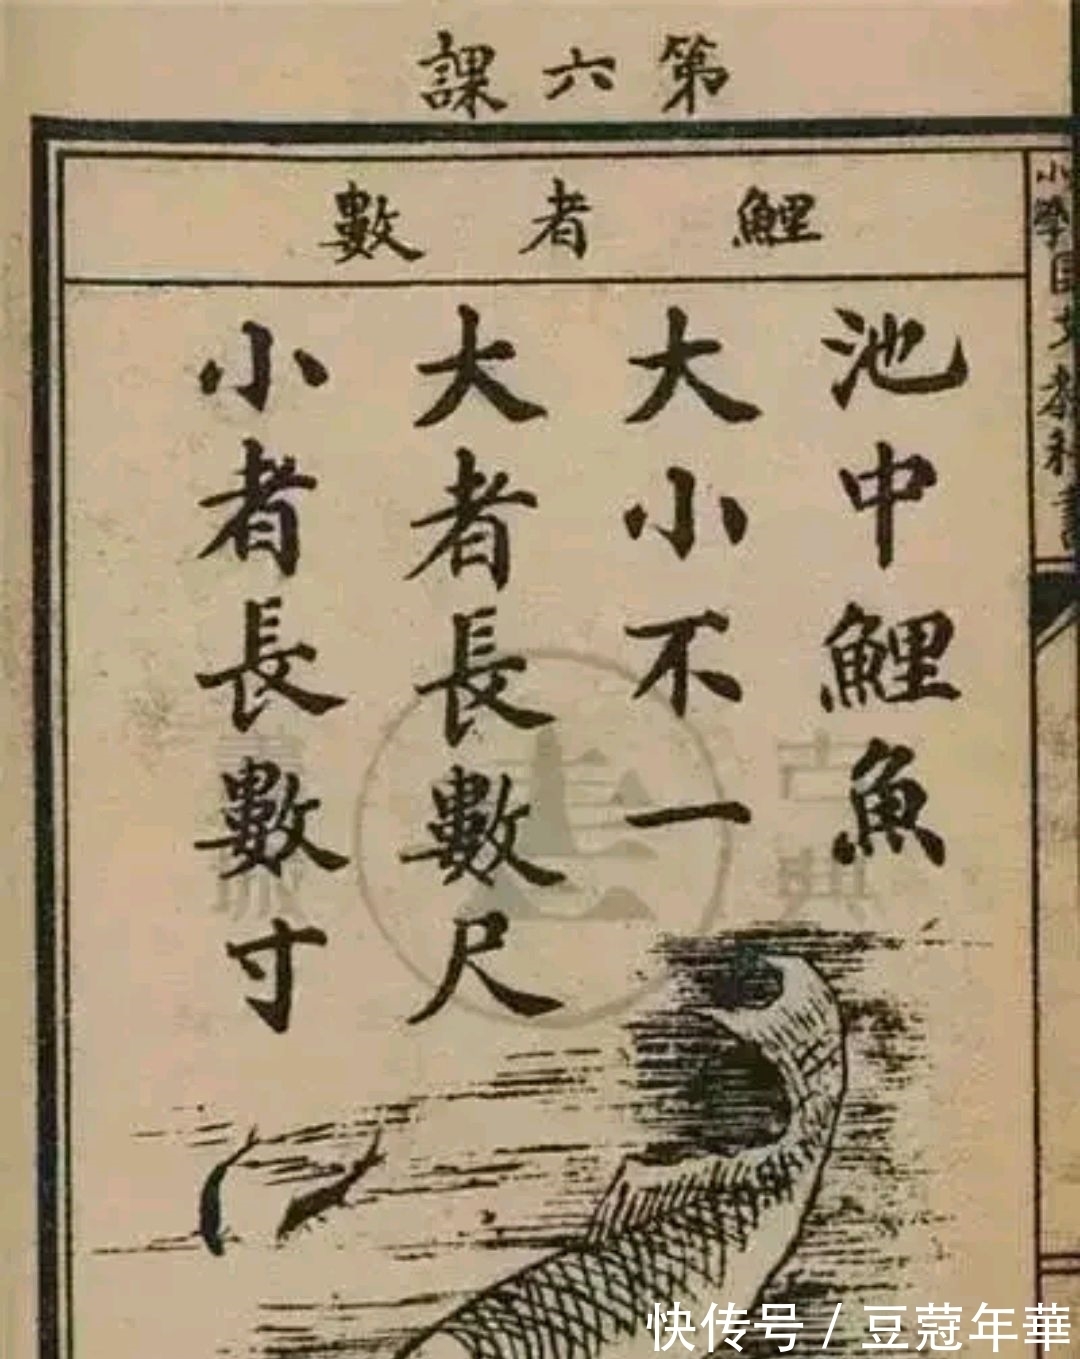 第六課
鯉者數
池中鯉魚
大小不一
大者長數尺
小者長數寸
小學国文教科書
古典
書城
快传号 / 豆蔻年華